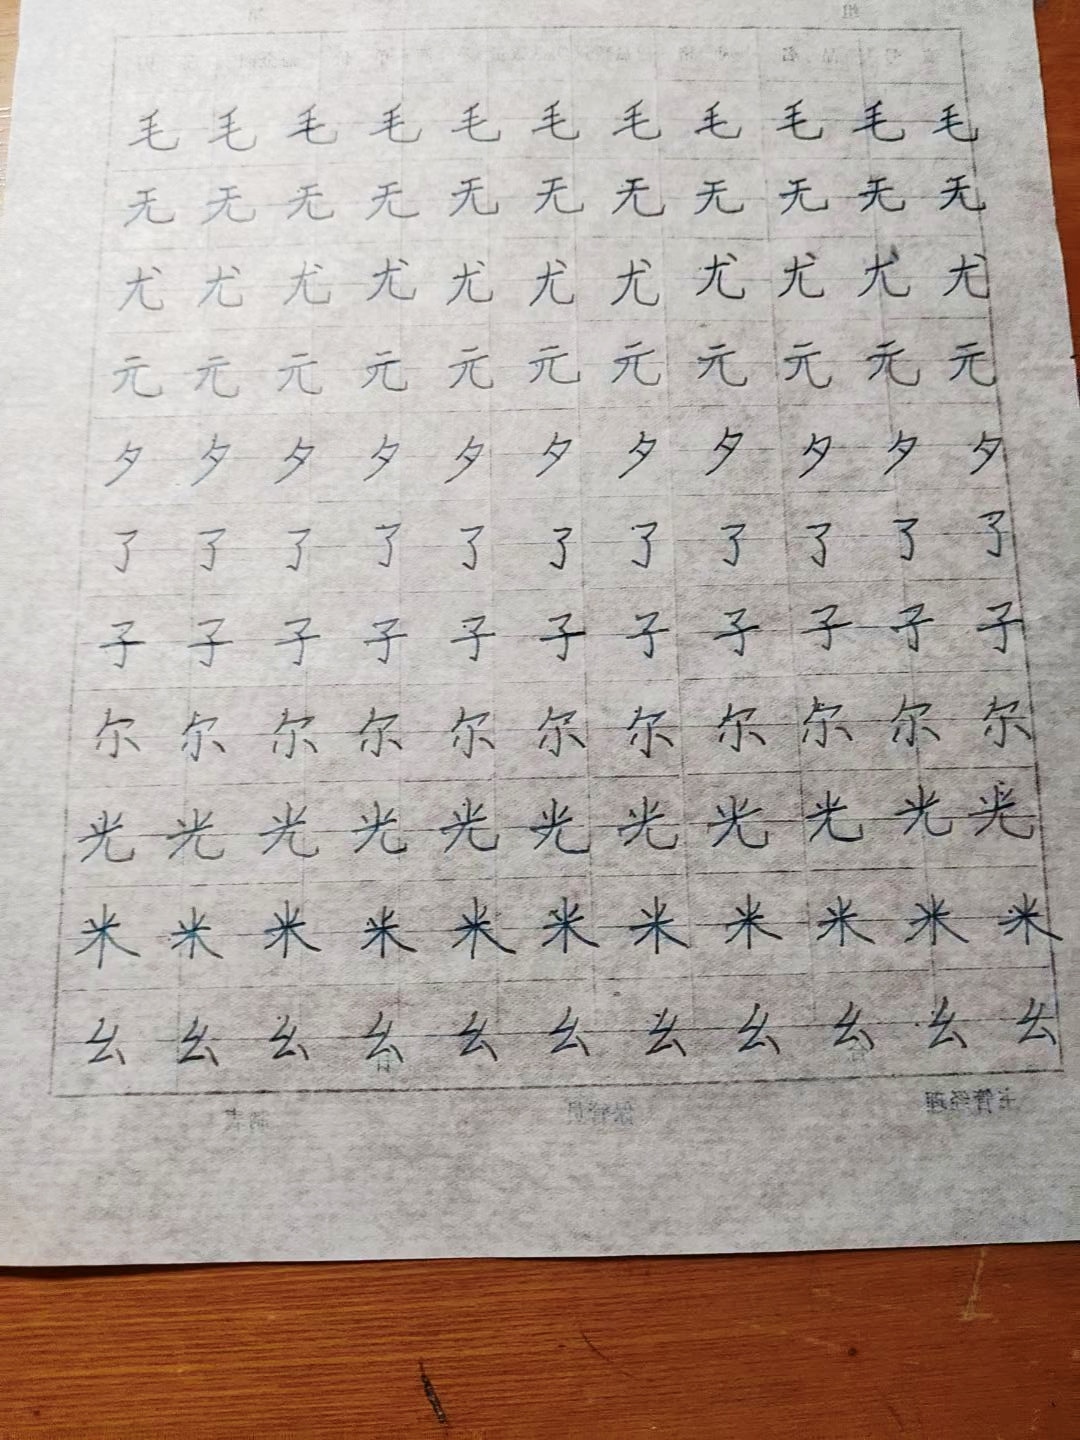 毛 毛 毛 毛 毛 毛 毛 毛 毛 毛 毛
无 无 无 无 无 无 无 无 无 无 无
尤 尤 尤 尤 尤 尤 尤 尤 尤 尤 尤
元 元 元 元 元 元 元 元 元 元 元
夕 夕 夕 夕 夕 夕 夕 夕 夕 夕 夕
了 了 了 了 了 了 了 了 了 了 了
子 子 子 子 子 子 子 子 子 子 子
尔 尔 尔 尔 尔 尔 尔 尔 尔 尔 尔
光 光 光 光 光 光 光 光 光 光 光
米 米 米 米 米 米 米 米 米 米 米
幺 幺 幺 幺 幺 幺 幺 幺 幺 幺 幺
主管经理 保管员 制表